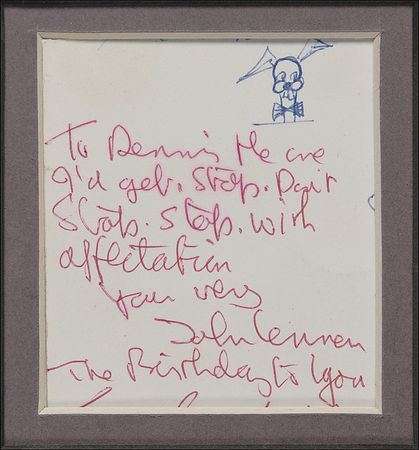 To Dennis Me one
I'd get. Stop. Don't
Stop. Stop. With
affectation
your very
John Lennon
The Birthday to you